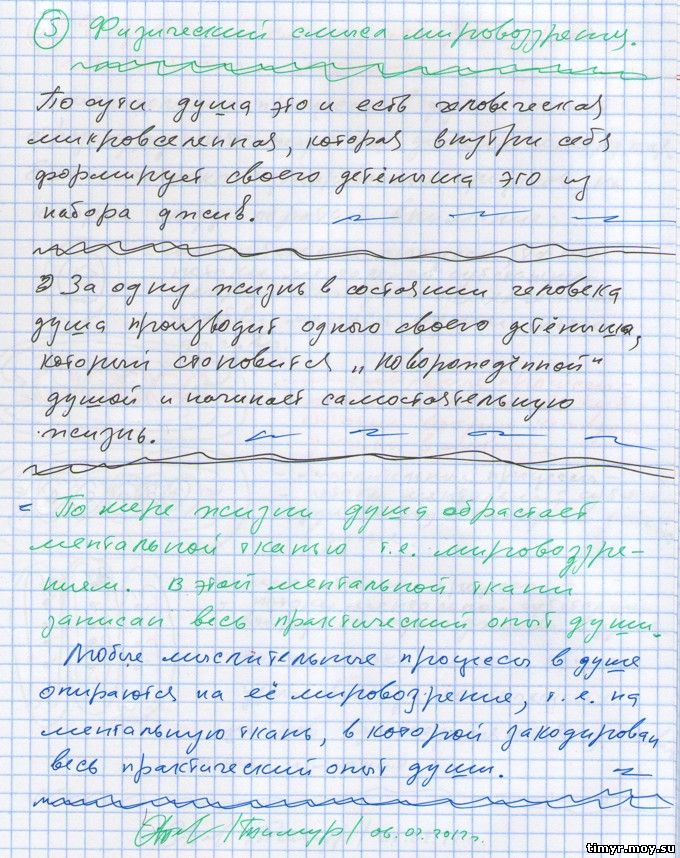 5 Физический смысл мировоззрения.
По сути душа это и есть человеческая
микровселенная, которая внутри себя
формирует своего детёныша это из
набора джив.
За одну жизнь в состоянии человека
душа производит одного своего детёныша,
который становится „новорождённой“
душой и начинает самостоятельную
жизнь.
По мере жизни душа обрастает
ментальной тканью т.е. мировоззре-
нием. В этой ментальной ткани
записан весь практический опыт души.
Любые мыслительные процессы в душе
опираются на её мировозрение, т.е. на
ментальную ткань, в которой закодирован
весь практический опыт души.
/Тимур/ 06.07.2012г.
timyr.moy.su